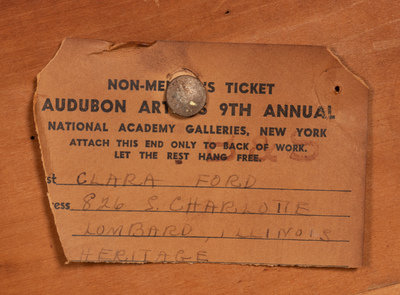 NON-MEMBERS TICKET
AUDUBON ARTISTS 9TH ANNUAL
NATIONAL ACADEMY GALLERIES, NEW YORK
ATTACH THIS END ONLY TO BACK OF WORK.
LET THE REST HANG FREE.
st CLARA FORD
ress 826 S. CHARLOTTE
LOMBARD, ILLINOIS
HERITAGE